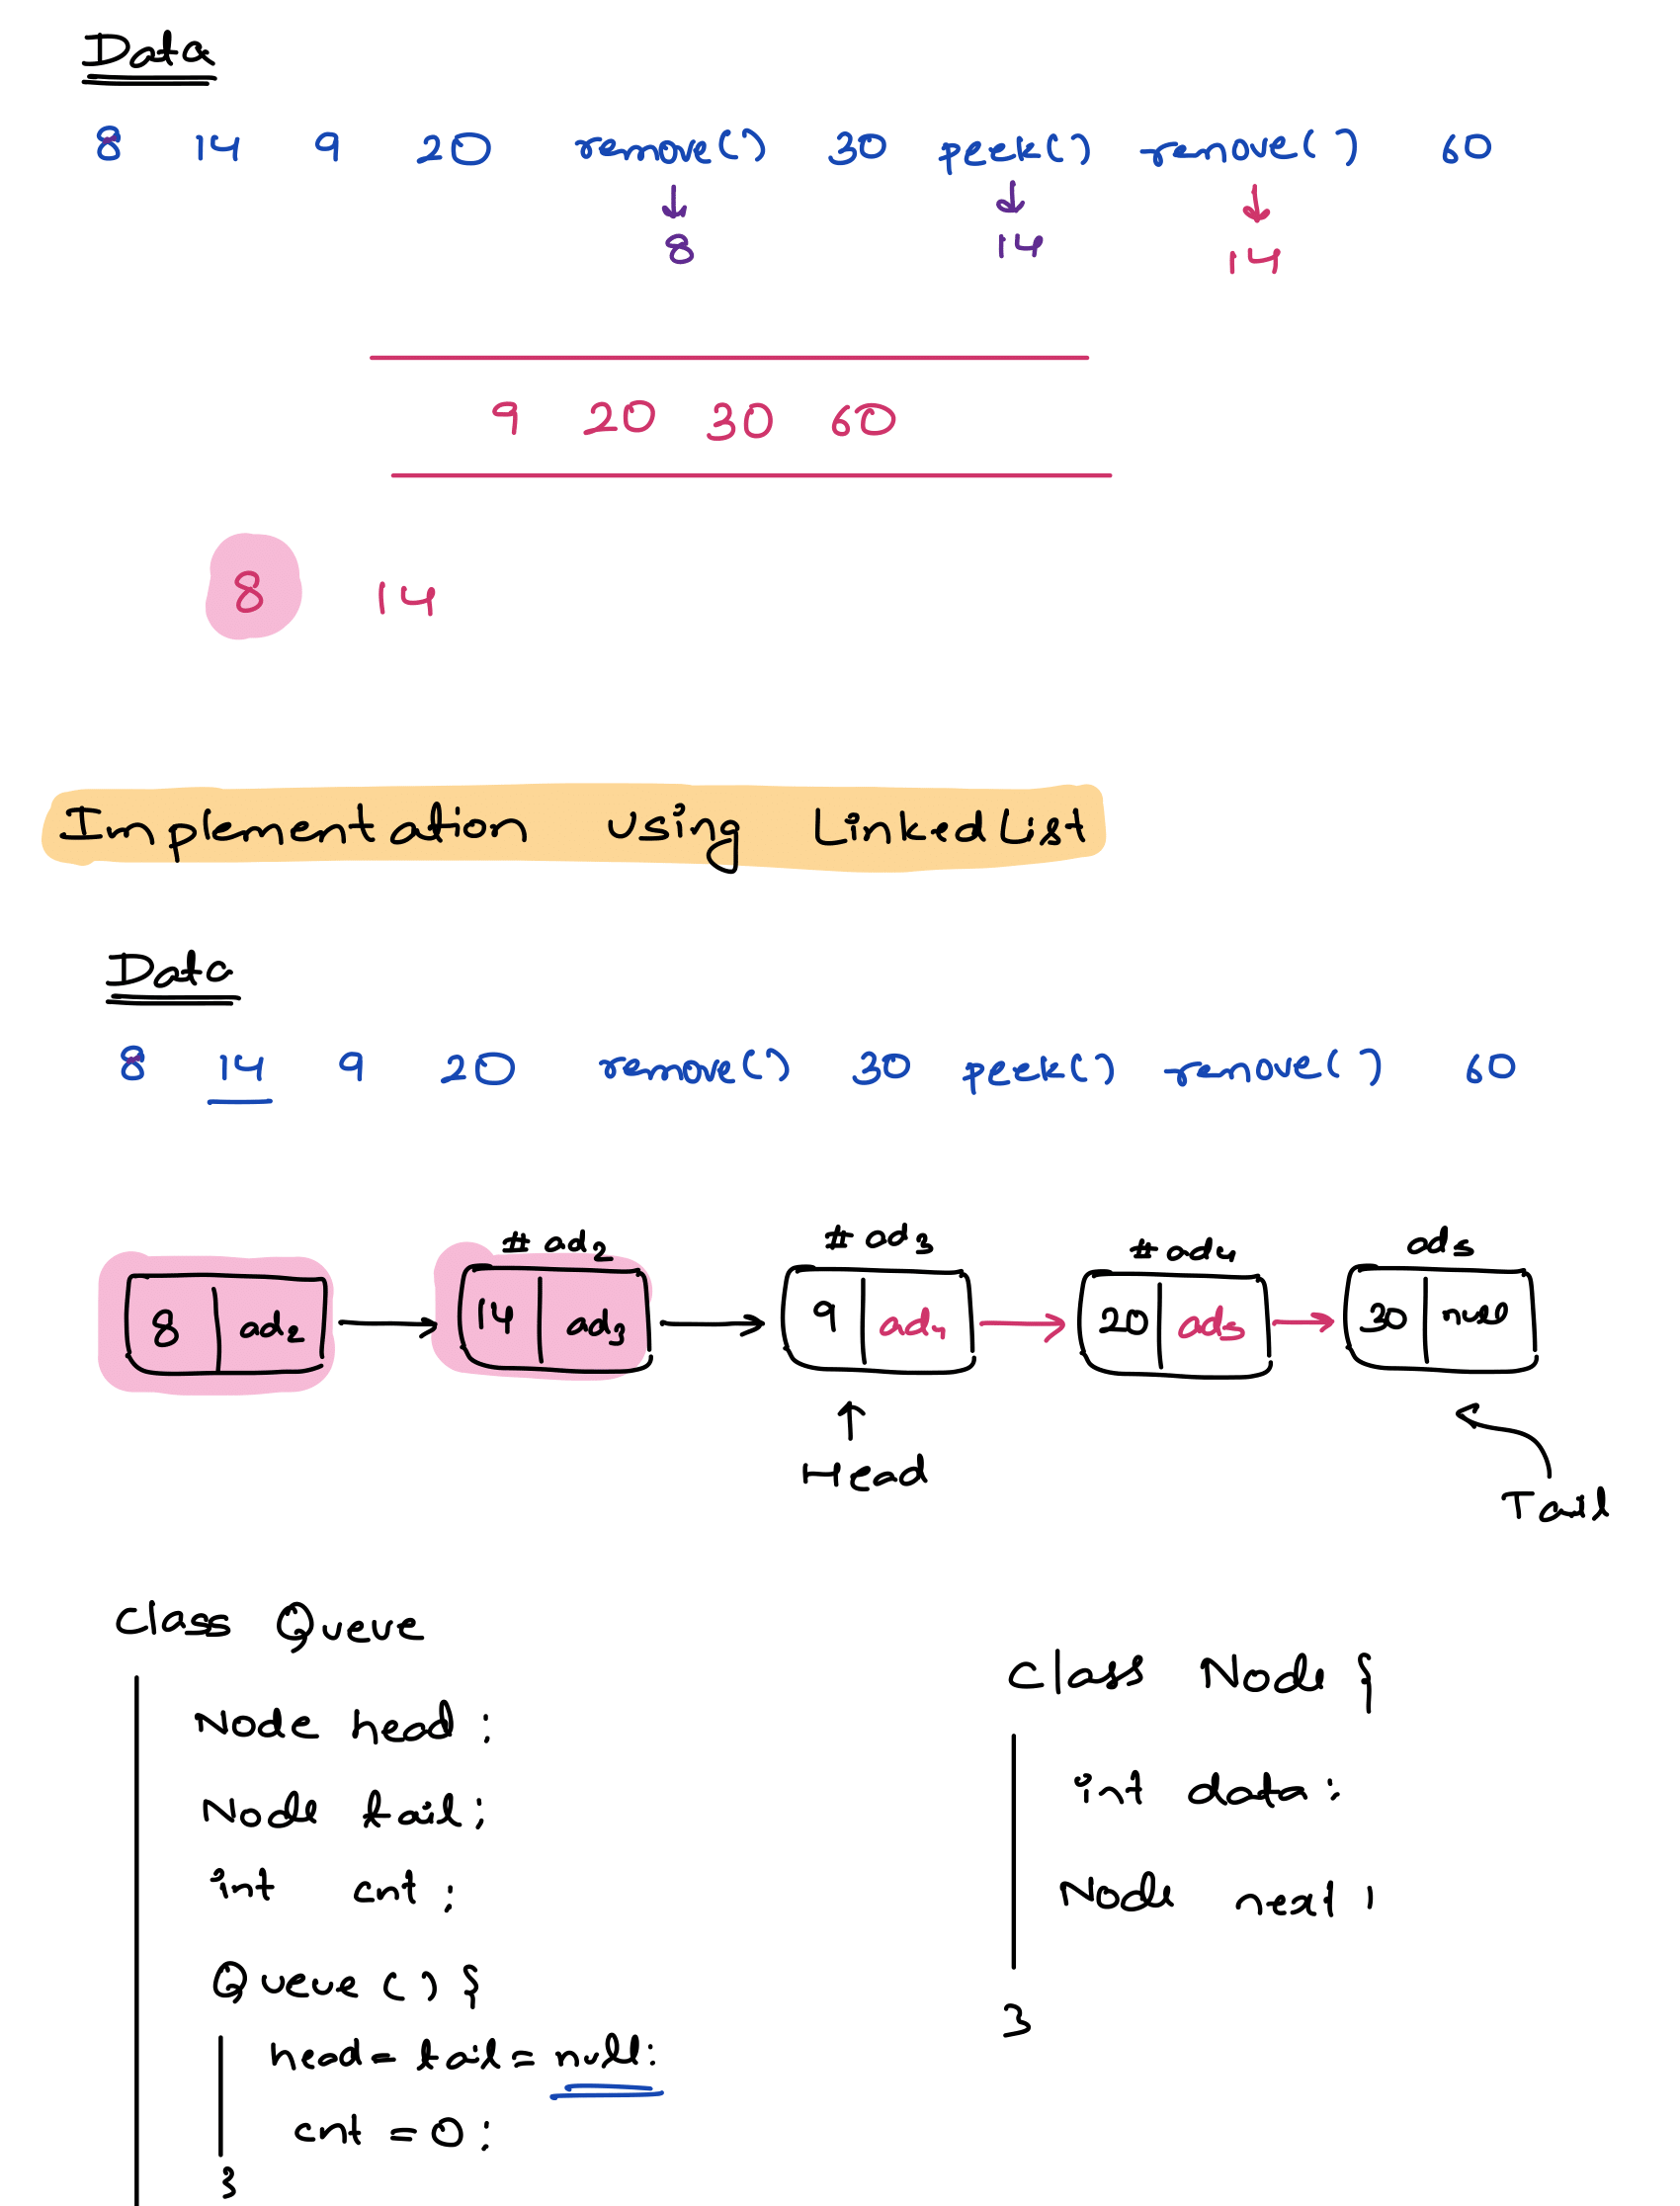 Data
8 14 9 20 remove() 30 peek() remove() 60
8 14 14
9 20 30 60
8 14
Implementation using LinkedList
Data
8 14 9 20 remove() 30 peek() remove() 60
# ad2 # ad3 # ad4 ad5
8 ad2 14 ad3 9 ad4 20 ad5 30 null
Head
Tail
Class Queue
Node head ;
Node tail ;
int cnt ;
Queue () {
head = tail = null ;
cnt = 0 ;
}
Class Node {
int data ;
Node next ;
}